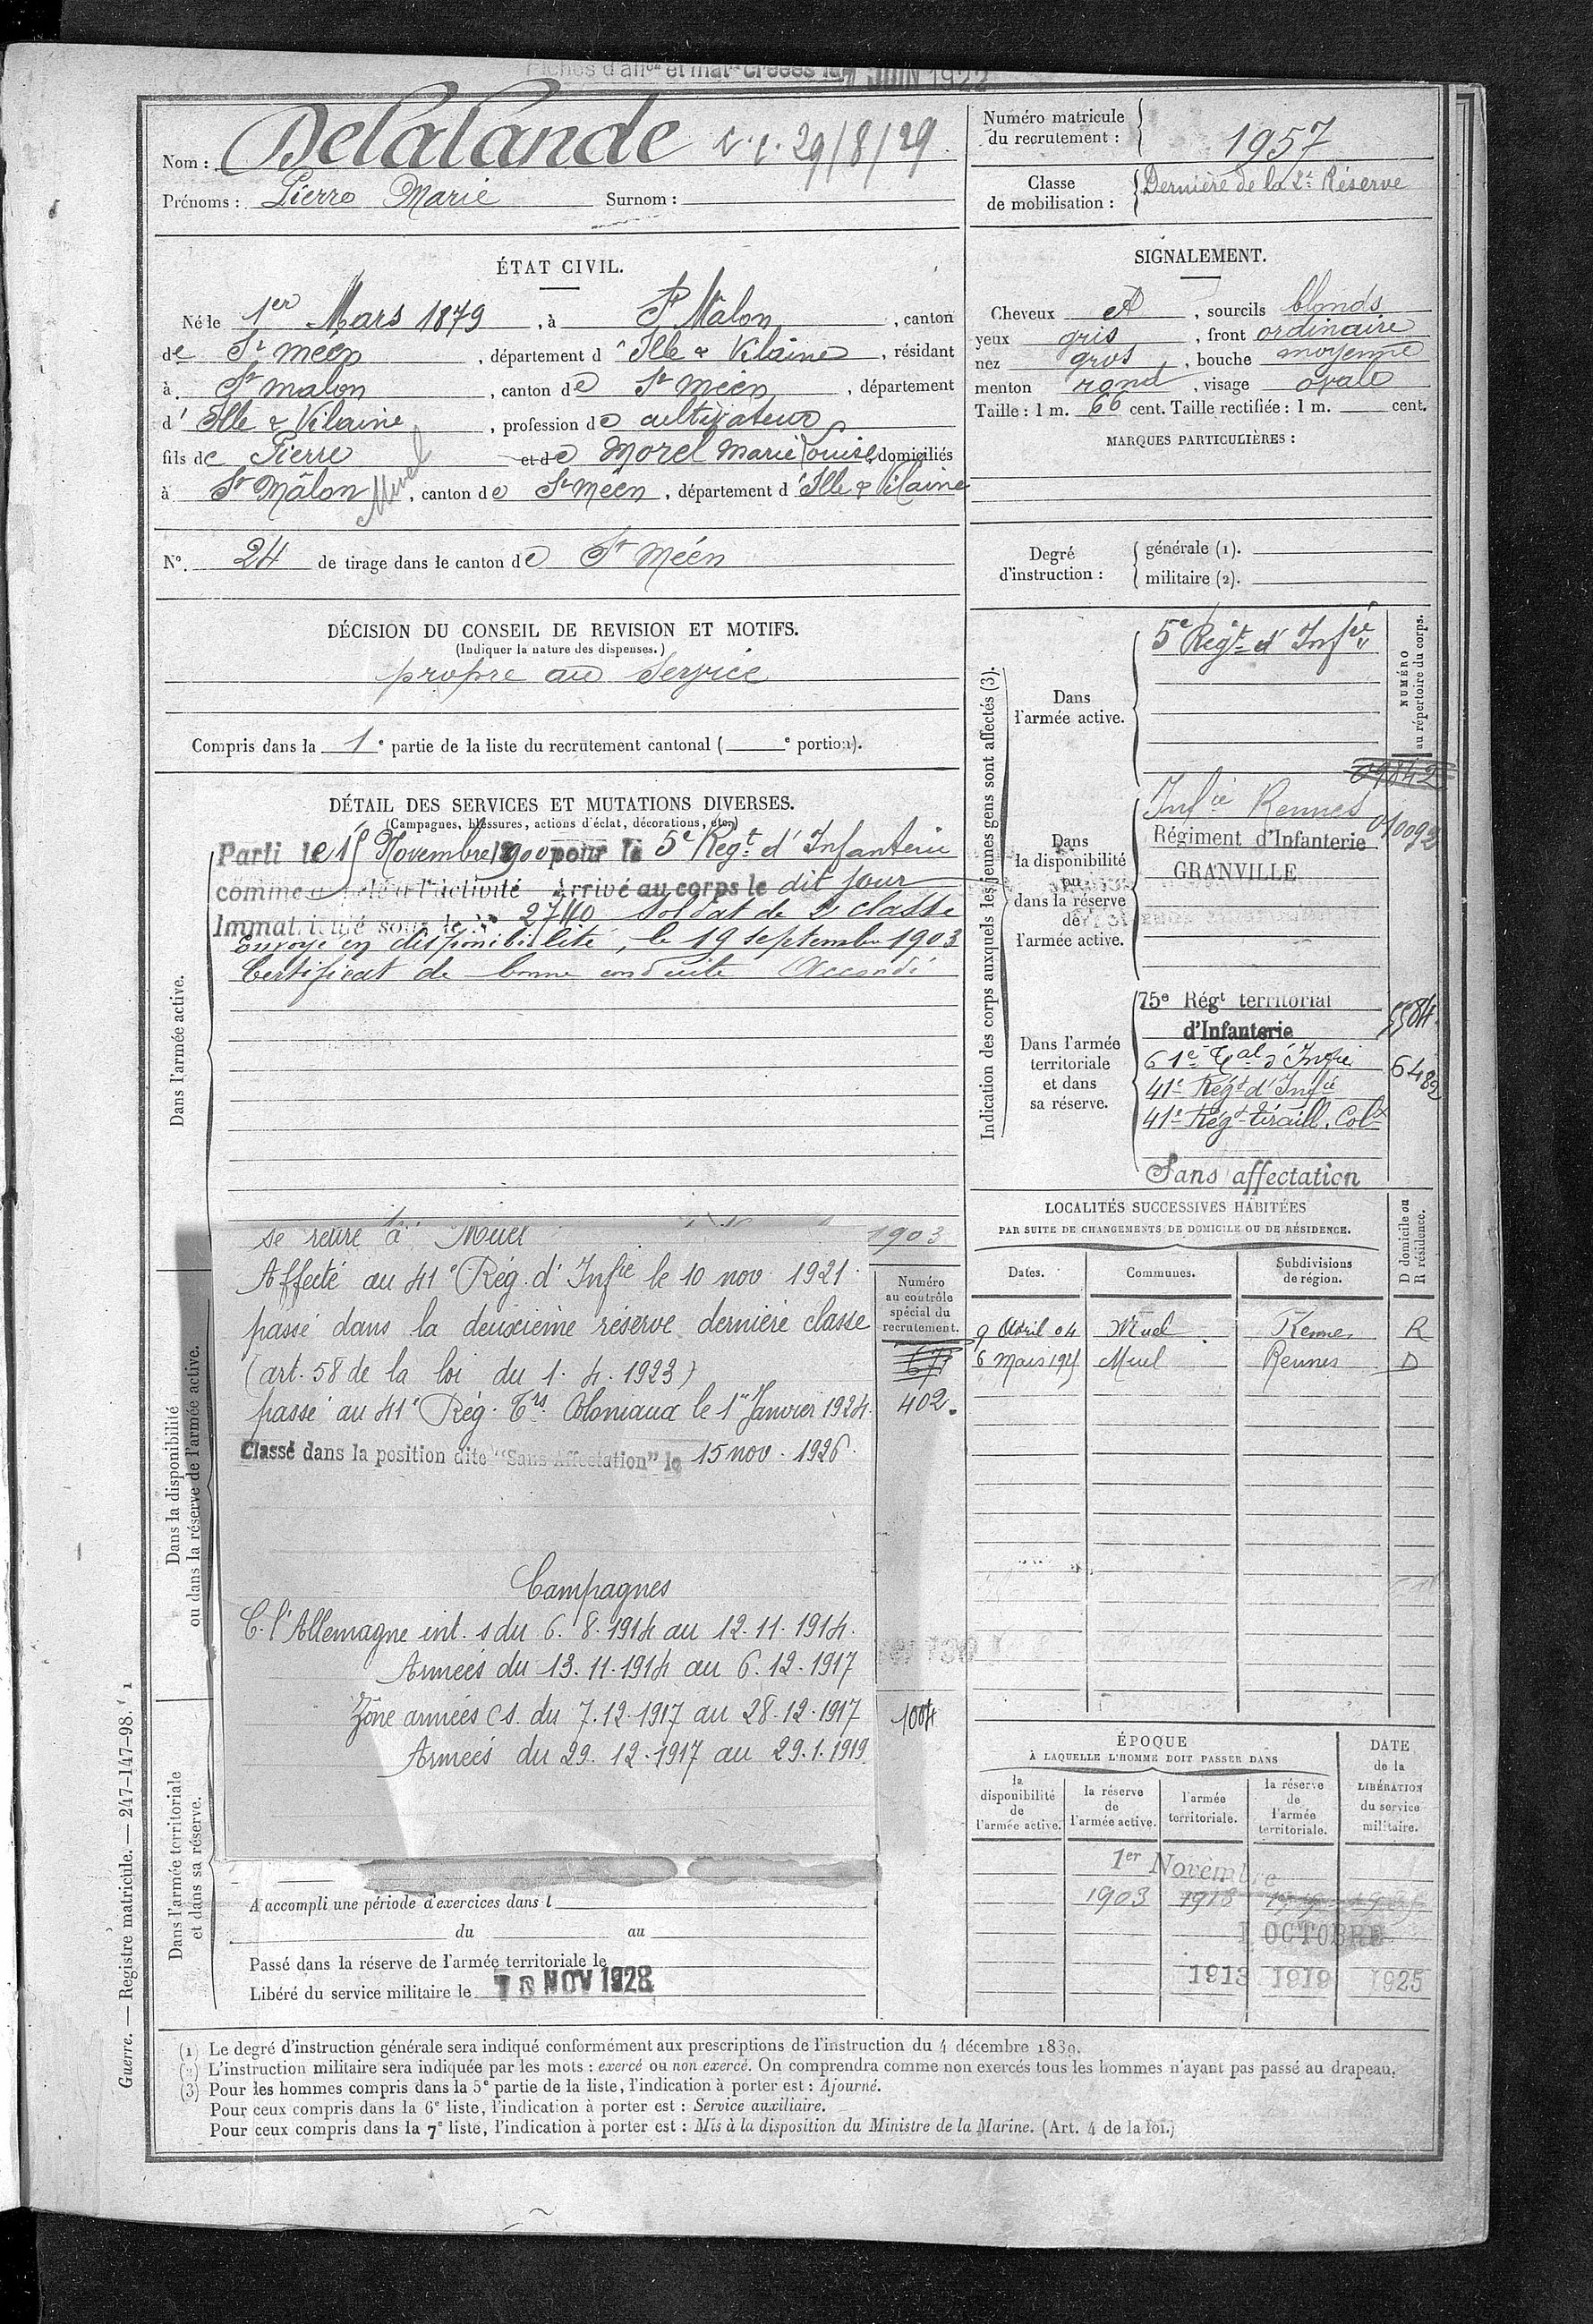 Fiches d'aff<sup>on</sup> et mat<sup>le</sup> créées le 1 JUIN 1922
Nom : Delalande 29/8/29
Prénoms : Pierre Marie Surnom :
Numéro matricule
du recrutement : 1957
Classe
de mobilisation : Dernière de la 2e Réserve
ÉTAT CIVIL.
Né le 1er Mars 1879, à St Malon, canton
de St méen, département d'Ille & Vilaine, résidant
à St malon, canton de St méen, département
d'Ille & Vilaine, profession de cultivateur
fils de Pierre et de Morel Marie Louise, domiciliés
à St Mâlon, canton de St méen, département d'Ille & Vilaine
Muel
N° 24 de tirage dans le canton de St Méen
SIGNALEMENT.
Cheveux et, sourcils blonds
yeux gris, front ordinaire
nez gros, bouche moyenne
menton rond, visage ovale
Taille : 1 m. 66 cent. Taille rectifiée : 1 m. cent.
MARQUES PARTICULIÈRES :
Degré
d'instruction :
générale (1).
militaire (2).
DÉCISION DU CONSEIL DE REVISION ET MOTIFS.
(Indiquer la nature des dispenses.)
propre au service
Compris dans la 1e partie de la liste du recrutement cantonal (e portion).
DÉTAIL DES SERVICES ET MUTATIONS DIVERSES.
(Campagnes, blessures, actions d'éclat, décorations, etc.)
Dans l'armée active.
Parti le 15 Novembre 1900 pour le 5e Régt d'Infanterie
comme appelé à l'activité Arrivé au corps le dit jour
Immatriculé sous le N° 2740 soldat de 2e classe
Envoyé en disponibilité, le 19 septembre 1903
Certificat de bonne conduite Accordé
se retire à Muel 1903
Dans la disponibilité
ou dans la réserve de l'armée active.
Affecté au 41e Rég. d'Infie le 10 nov. 1921.
passé dans la deuxième réserve dernière classe
(art. 58 de la loi du 1. 4. 1923)
passé au 41e Rég. Trs Coloniaux le 1er Janvier 1924.
Classé dans la position dite "Sans Affectation" le 15 nov. 1926.
Numéro
au contrôle
spécial du
recrutement.
677
402.
Campagnes
C. l'Allemagne int. s du 6. 8. 1914 au 12. 11. 1914.
Armées du 13. 11. 1914 au 6. 12. 1917
Zône armées cs. du 7. 12. 1917 au 28. 12. 1917
Armées du 29. 12. 1917 au 29. 1. 1919
1004
Dans l'armée territoriale
et dans sa réserve.
A accompli une période d'exercices dans l
du au
Passé dans la réserve de l'armée territoriale le
Libéré du service militaire le 10 NOV 1928
Indication des corps auxquels les jeunes gens sont affectés (3).
NUMÉRO
au répertoire du corps.
Dans
l'armée active.
5e Régt d'Infie
09842
Dans
la disponibilité
ou
dans la réserve
de
l'armée active.
Infie Rennes
Régiment d'Infanterie 010092
GRANVILLE
Dans l'armée
territoriale
et dans
sa réserve.
75e Régt territorial 5584
d'Infanterie
61e Tal d'Infie 6482
41e Régt d'Infie
41e Régt tiraill. Colx
Sans affectation
LOCALITÉS SUCCESSIVES HABITÉES
PAR SUITE DE CHANGEMENTS DE DOMICILE OU DE RÉSIDENCE.
Dates. Communes. Subdivisions
de région. D domicile ou
R résidence.
9 Avril 04 Muel Rennes R
6 Mars Muel Rennes D
ÉPOQUE
À LAQUELLE L'HOMME DOIT PASSER DANS
la
disponibilité
de
l'armée active.
la réserve
de
l'armée active.
l'armée
territoriale.
la réserve
de
l'armée
territoriale.
DATE
de la
LIBÉRATION
du service
militaire.
1er Novembre
1903 1918
1 OCTOBRE
1913 1919 1925
(1) Le degré d'instruction générale sera indiqué conformément aux prescriptions de l'instruction du 4 décembre 1889.
(2) L'instruction militaire sera indiquée par les mots : exercé ou non exercé. On comprendra comme non exercés tous les hommes n'ayant pas passé au drapeau.
(3) Pour les hommes compris dans la 5e partie de la liste, l'indication à porter est : Ajourné.
Pour ceux compris dans la 6e liste, l'indication à porter est : Service auxiliaire.
Pour ceux compris dans la 7e liste, l'indication à porter est : Mis à la disposition du Ministre de la Marine. (Art. 4 de la loi.)
Guerre. — Registre matricule. — 247-147-98.